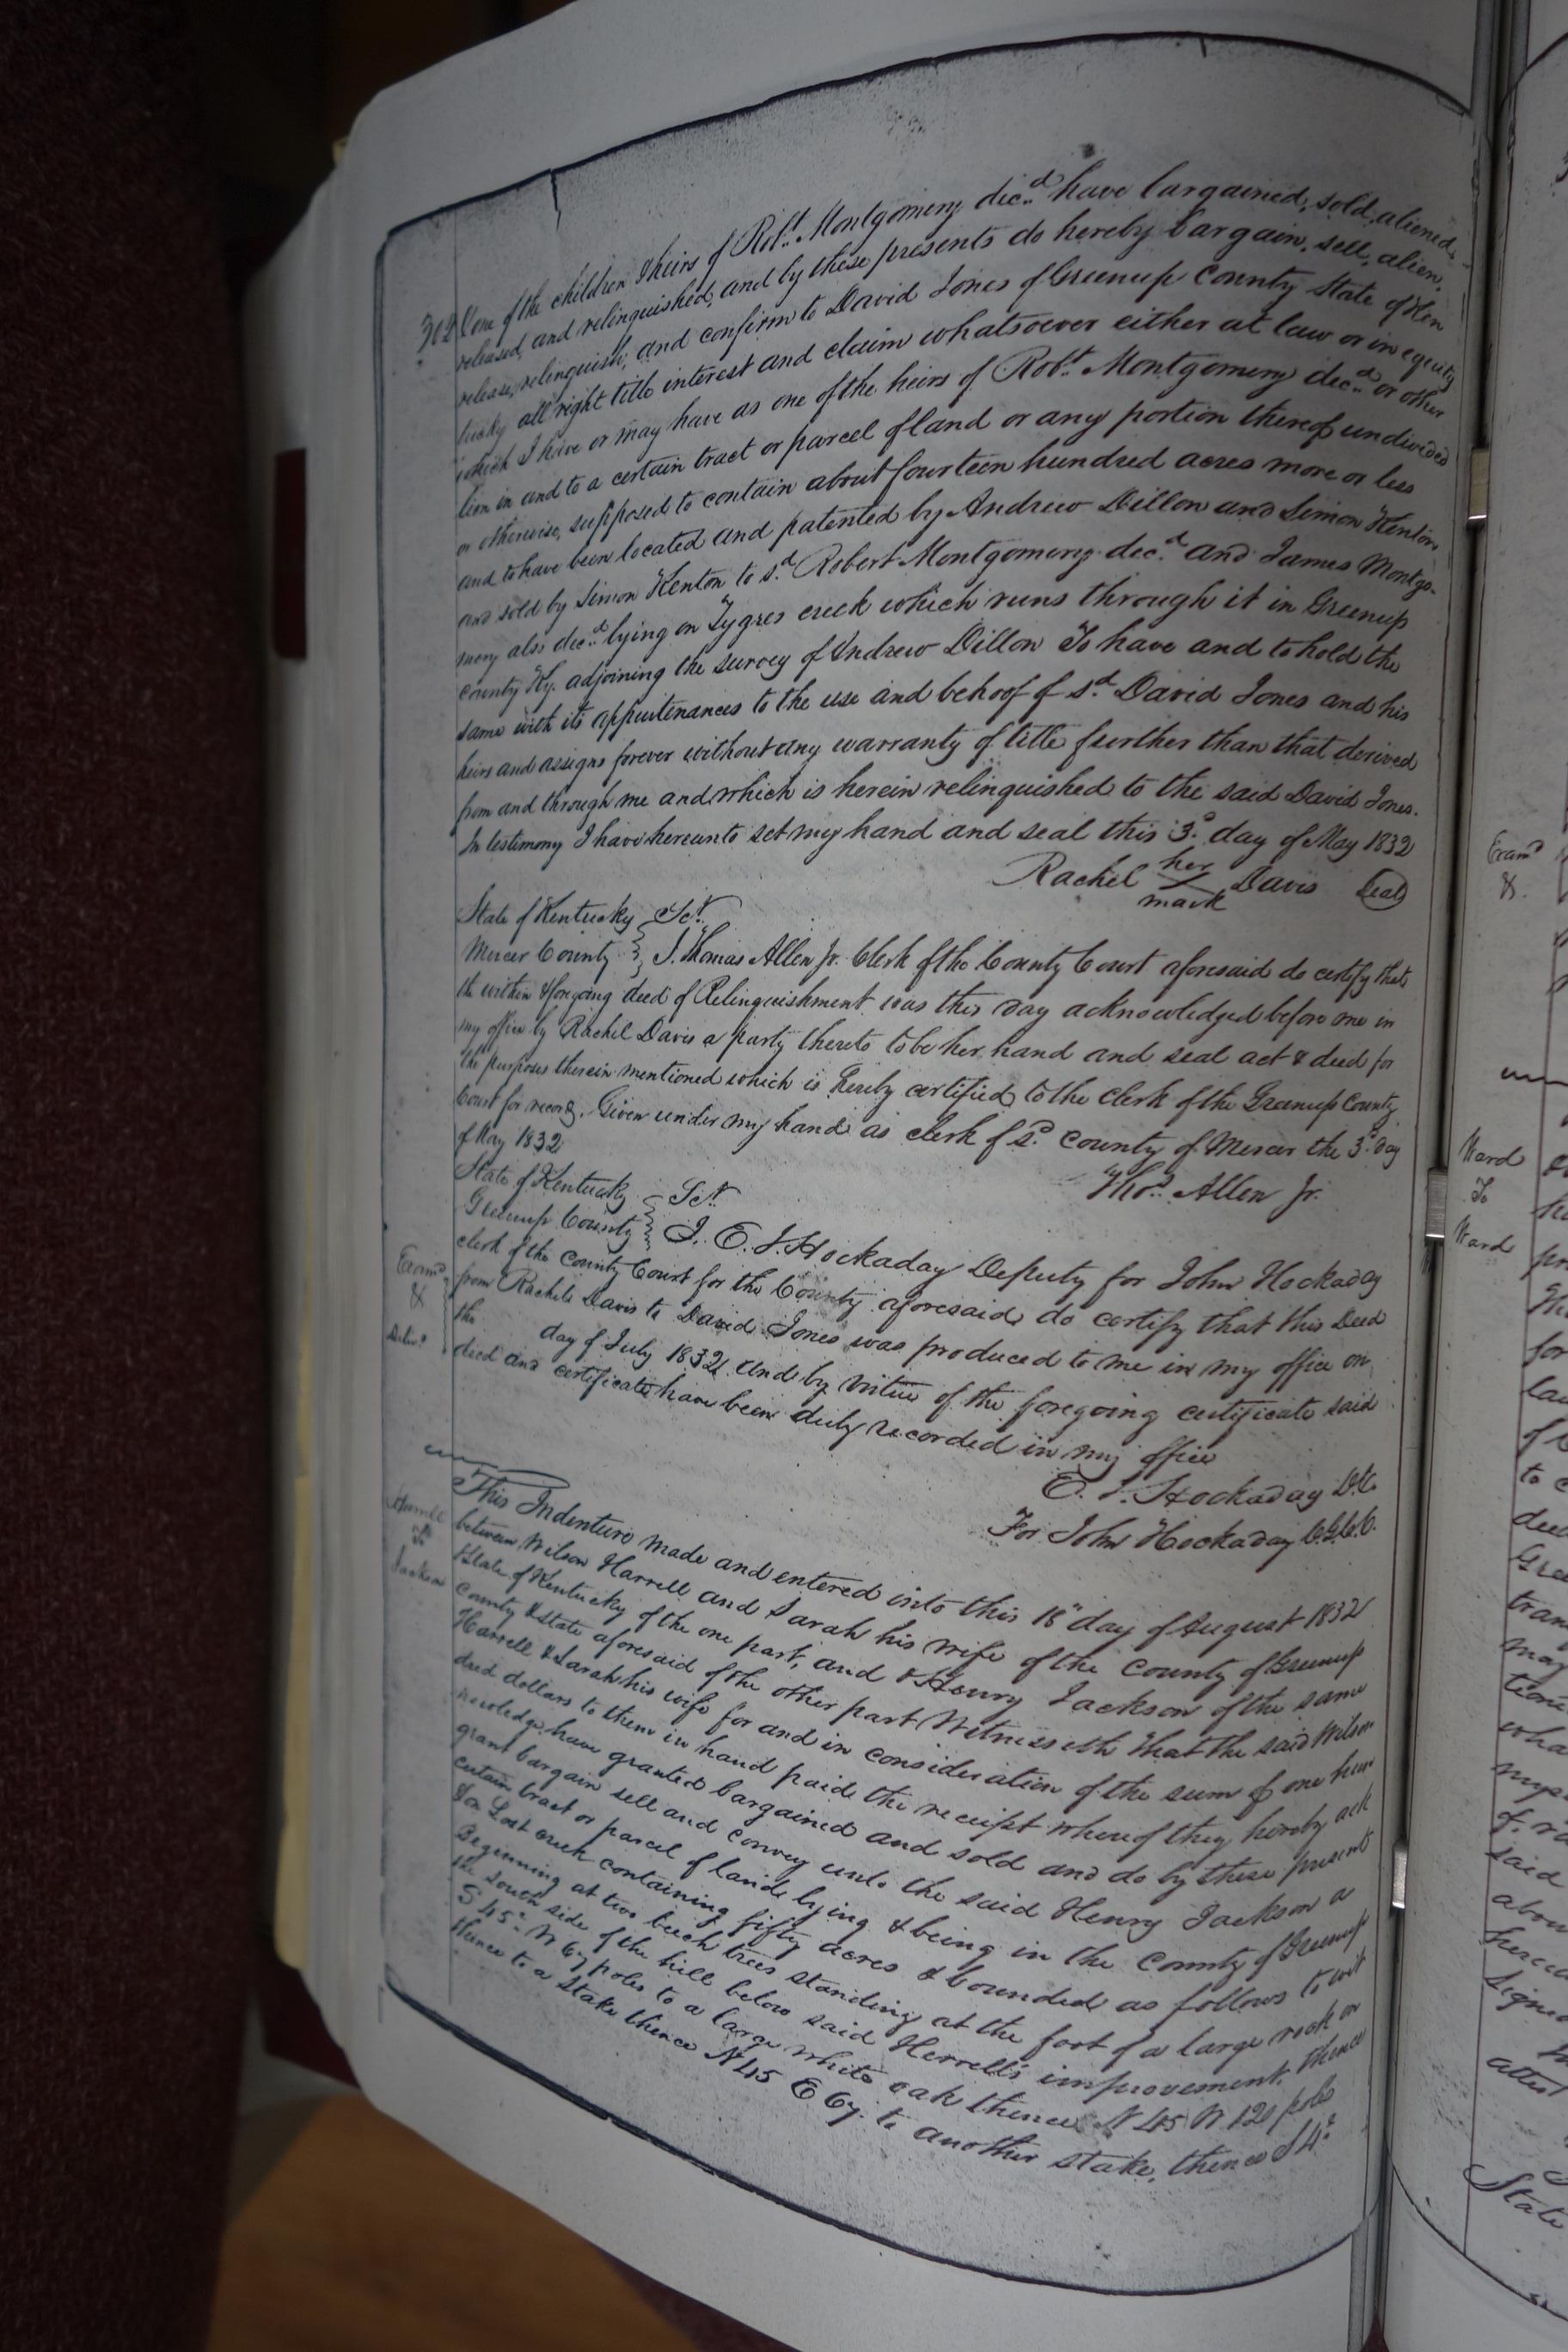 302 One of the children & heirs of Robt. Montgomery dec.d have bargained, sold, aliened,
released, and relinquished, and by these presents do hereby bargain, sell, alien,
release, relinquish, and confirm to David Jones of Greenup County State of Ken
tucky all right title interest and claim whatsoever either at law or in equity
which I have or may have as one of the heirs of Robt. Montgomery dec.d or other
lien in and to a certain tract or parcel of land or any portion thereof undivided
or otherwise, supposed to contain about fourteen hundred acres more or less
and to have been located and patented by Andrew Dillon and Simon Kenton
and sold by Simon Kenton to s.d Robert Montgomery dec.d and James Montgo-
mery also dec.d lying on Tygres creek which runs through it in Greenup
county Ky. adjoining the survey of Andrew Dillon To have and to hold the
same with its appurtenances to the use and behoof of s.d David Jones and his
heirs and assigns forever without any warranty of title further than that derived
from and through me and which is herein relinquished to the said David Jones.
In testimony I have hereunto set my hand and seal this 3.d day of May 1832
Rachel her mark Davis Seal
State of Kentucky Sct.
Mercer County I. Thomas Allen Jr. Clerk of the County Court aforesaid do certify that
the within & foregoing deed of Relinquishment was this day acknowledged before me in
my office by Rachel Davis a party thereto to be her hand and seal act & deed for
the purposes therein mentioned which is hereby certified to the clerk of the Greenup County
Court for record. Given under my hand as clerk of s.d County of Mercer the 3.d day
of May 1832
Tho.s Allen Jr.
State of Kentucky Sct.
Greenup County I. E. J. Hockaday Deputy for John Hockaday
clerk of the County Court for the County aforesaid do certify that this Deed
Exam.d & Deliv.d
from Rachels Davis to David Jones was produced to me in my office on
the day of July 1832 and by virtue of the foregoing certificate said
deed and certificate have been duly recorded in my office
E. J. Hockaday D.C.
For John Hockaday C.G.C.C.
Harrell
To
Jackson
This Indenture made and entered into this 18" day of August 1832
between Wilson Harrell and Sarah his wife of the County of Greenup
State of Kentucky of the one part, and & Henry Jackson of the same
County & State aforesaid of the other part Witnesseth that the said Wilson
Harrell & Sarah his wife for and in consideration of the sum of one hun
dred dollars to them in hand paid the receipt whereof they hereby ack
nowledge have granted bargained and sold and do by these presents
grant bargain sell and convey unto the said Henry Jackson a
certain tract or parcel of land lying & being in the County of Greenup
& on Lost creek containing fifty acres & bounded as follows to wit
Beginning at two beech trees standing at the foot of a large rock on
the South side of the hill below said Herrell's improvement, thence
S 45° W 67 poles to a large white oak thence N 45 W 120 poles
thence to a Stake thence N 45 E 67. to another stake, thence S 4
Exam.d
&.
Ward
To
Ward
State